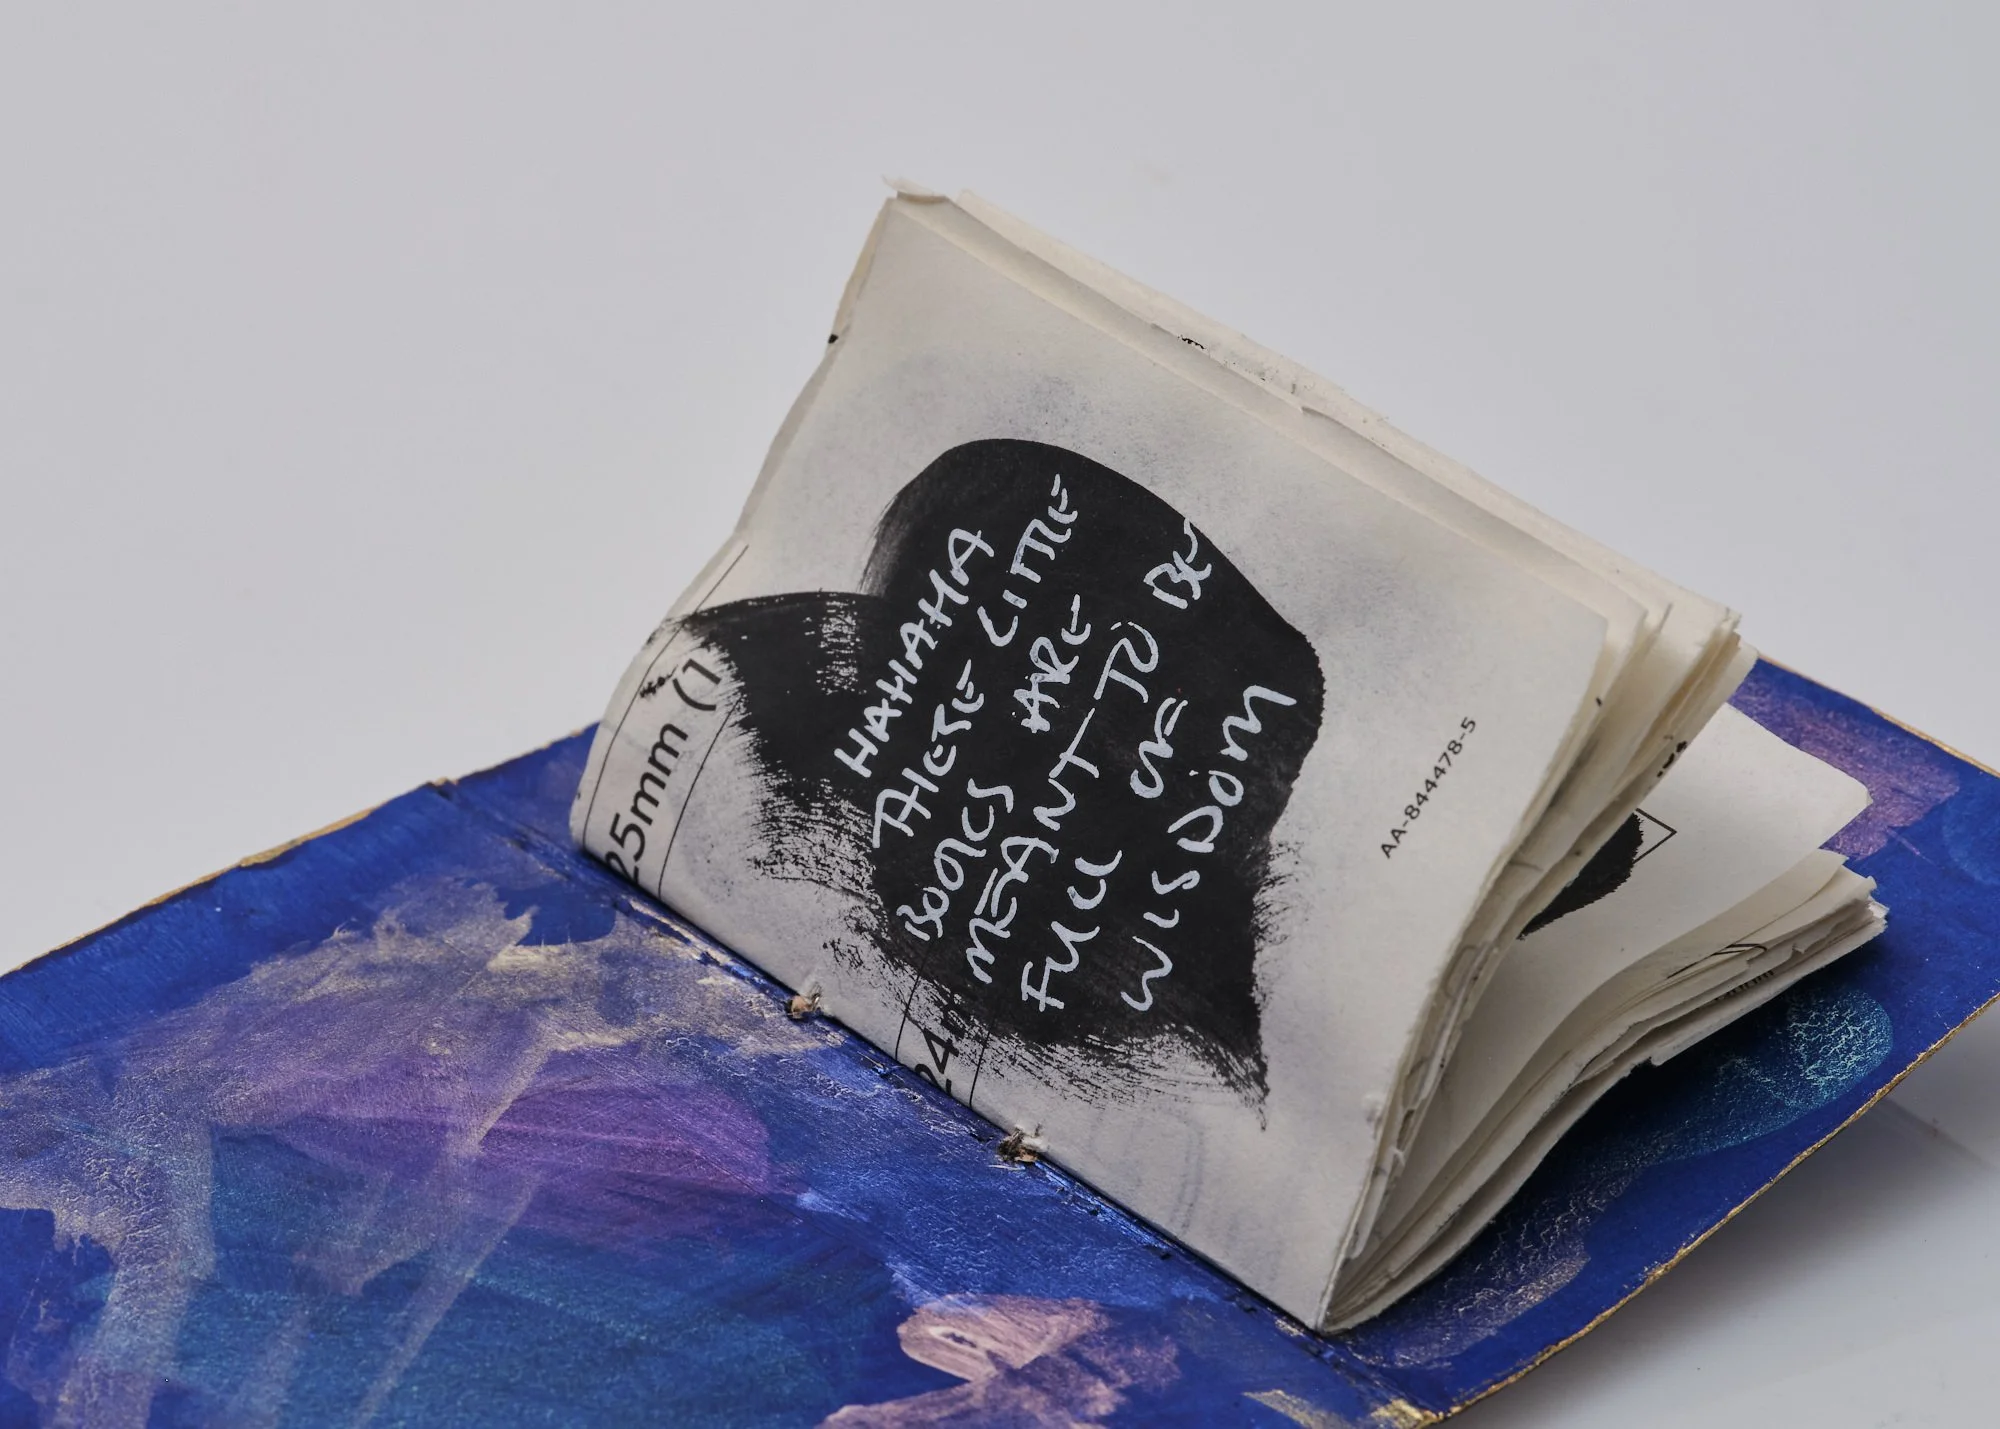 HAHAHA
THESE LITTLE
BOOKS ARE
MEANT TO BE
FULL OF
WISDOM
AA-844478-5
25mm (1
24